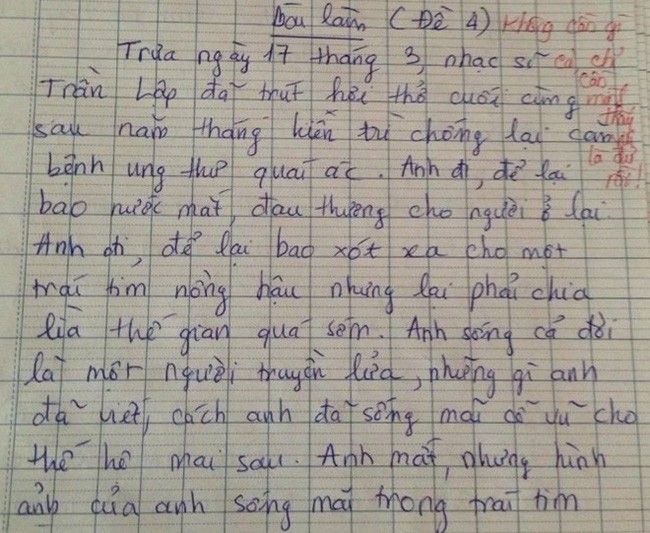 Bài làm (Đề 4)
Trưa ngày 17 tháng 3, nhạc sĩ
Trần Lập đã trút hơi thở cuối cùng
sau năm tháng kiên trì chống lại căn
bệnh ung thư quái ác. Anh đi, để lại
bao nước mắt, đau thương cho người ở lại.
Anh đi, để lại bao xót xa cho một
trái tim nồng hậu nhưng lại phải chia
lìa thế gian quá sớm. Anh sống cả đời
là một người truyền lửa, những gì anh
đã viết, cách anh đã sống mãi cổ vũ cho
thế hệ mai sau. Anh mất, nhưng hình
ảnh của anh sống mãi trong trái tim
Không cần gì
cả, chỉ
cần một
là đủ
rồi!